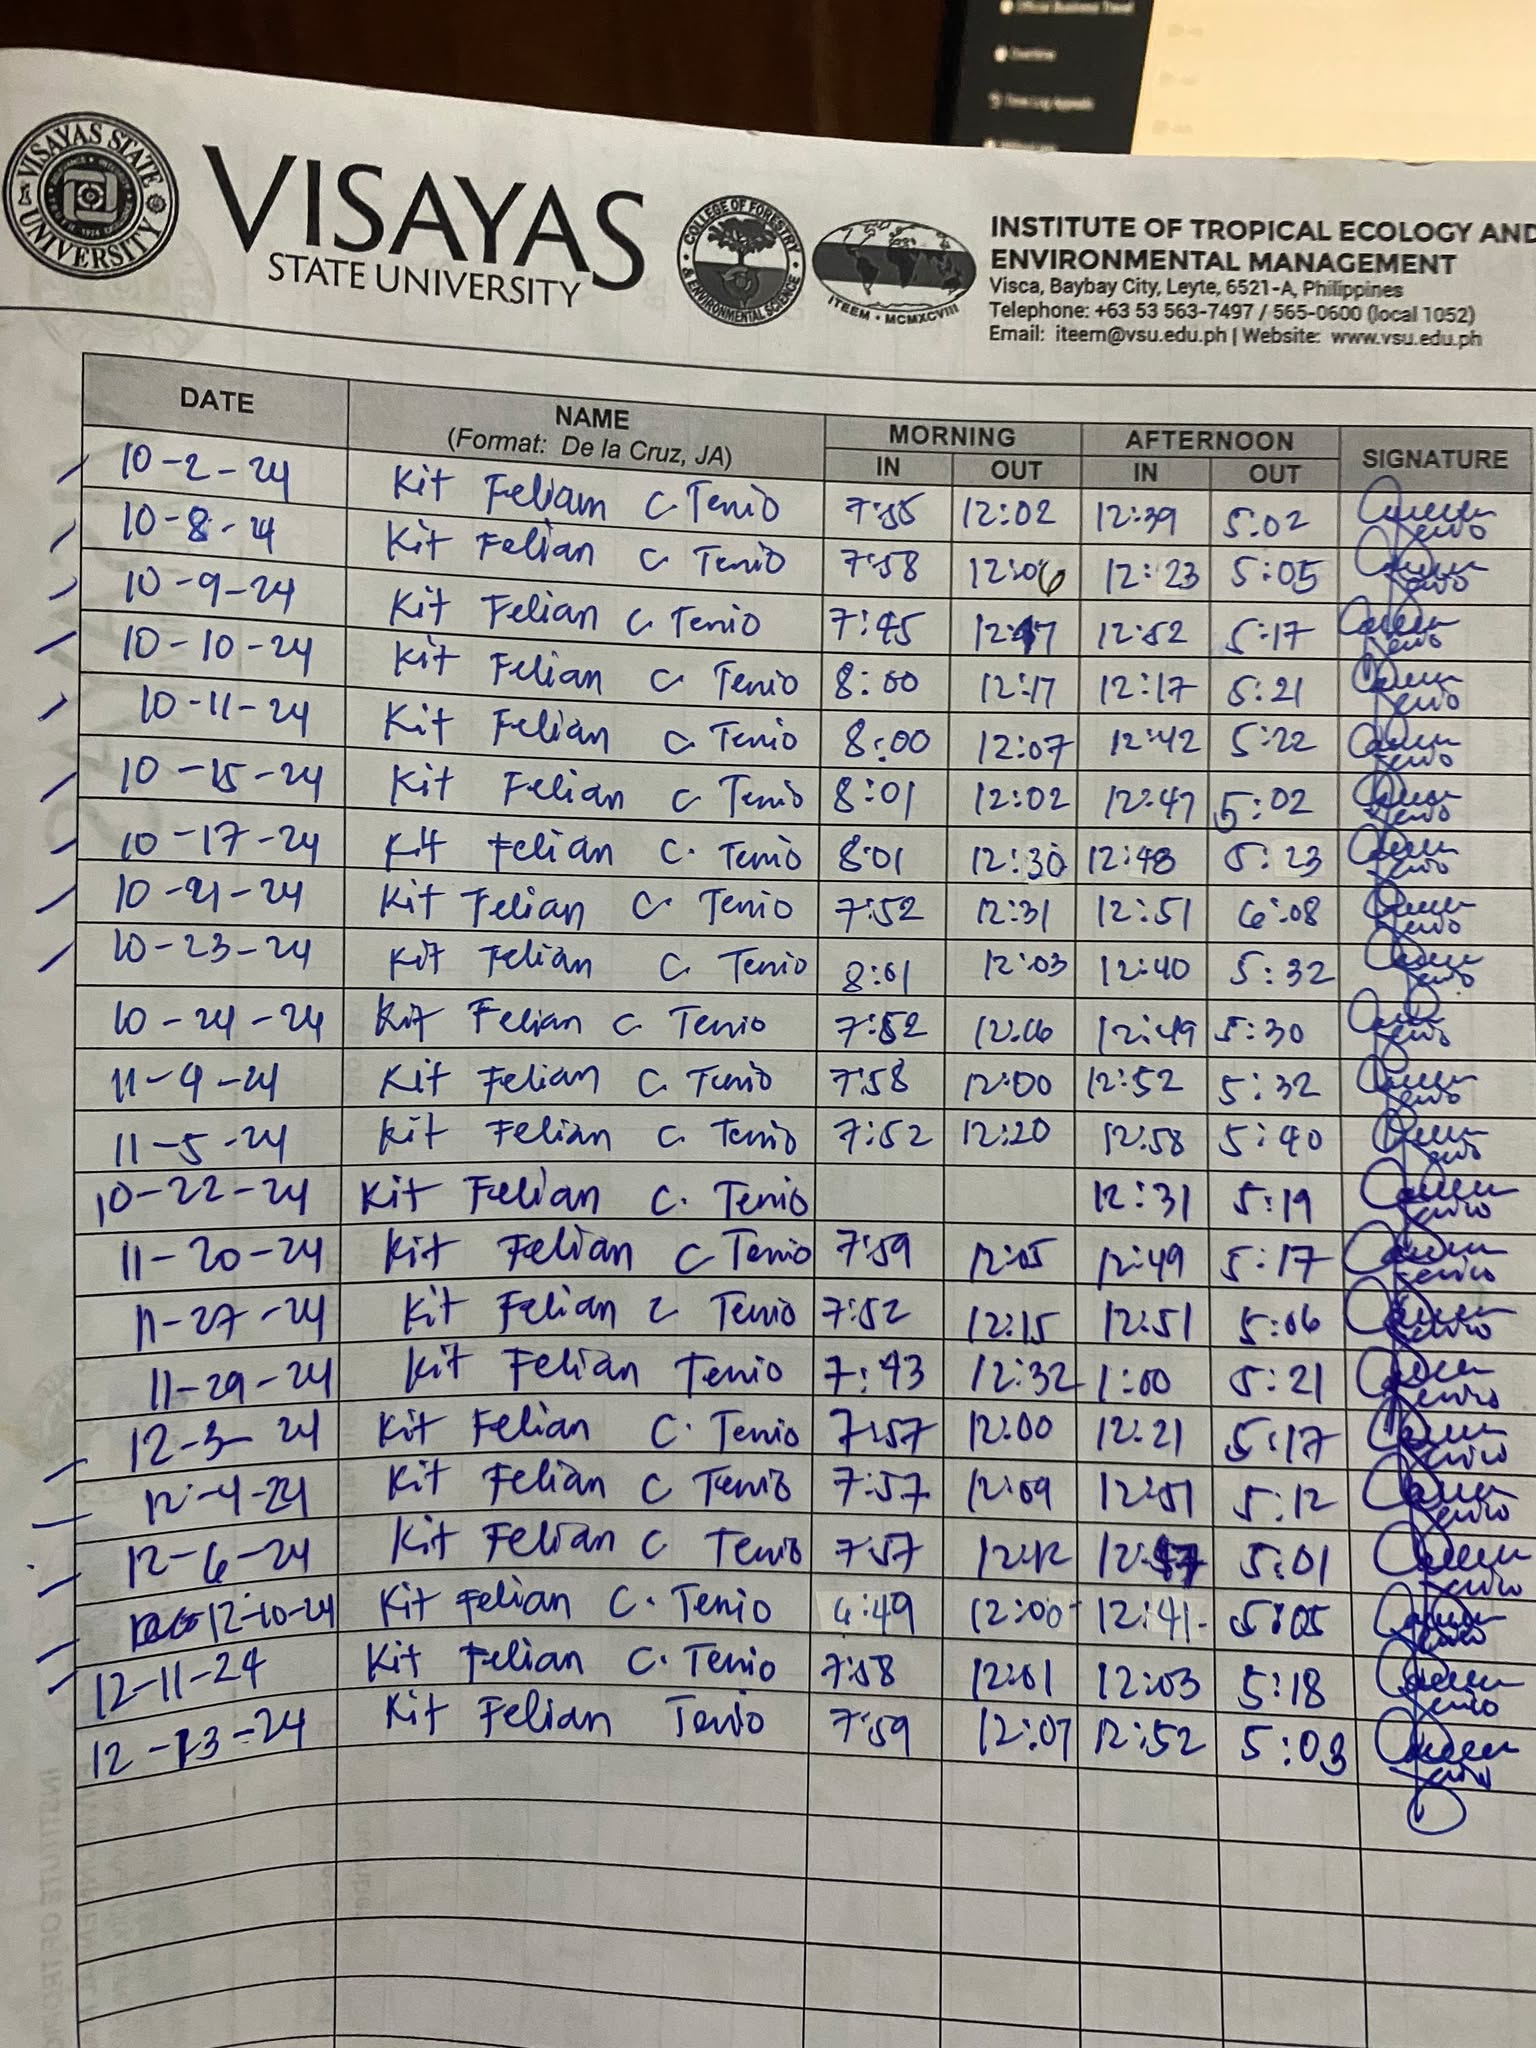 Official Business Travel
Overtime
Time Log Appeals
VISAYAS STATE UNIVERSITY
VISAYAS
STATE UNIVERSITY
COLLEGE OF FORESTRY & ENVIRONMENTAL SCIENCE
ITEEM • MCMXCVIII
INSTITUTE OF TROPICAL ECOLOGY AND
ENVIRONMENTAL MANAGEMENT
Visca, Baybay City, Leyte, 6521-A, Philippines
Telephone: +63 53 563-7497 / 565-0600 (local 1052)
Email: iteem@vsu.edu.ph | Website: www.vsu.edu.ph
DATE NAME MORNING AFTERNOON SIGNATURE
(Format: De la Cruz, JA) IN OUT IN OUT
10-2-24 Kit Felian C Tenio 7:55 12:02 12:39 5:02
10-8-24 Kit Felian C. Tenio 7:58 12:06 12:23 5:05
10-9-24 Kit Felian C Tenio 7:45 12:17 12:52 5:17
10-10-24 Kit Felian C Tenio 8:00 12:17 12:17 5:21
10-11-24 Kit Felian C Tenio 8:00 12:07 12:42 5:22
10-15-24 Kit Felian C Tenio 8:01 12:02 12:47 5:02
10-17-24 Kit Felian C. Tenio 8:01 12:30 12:48 5:23
10-21-24 Kit Felian C Tenio 7:52 12:31 12:51 6:08
10-23-24 Kit Felian C. Tenio 8:01 12:03 12:40 5:32
10-24-24 Kit Felian C Tenio 7:52 12:49 5:30
11-4-24 Kit Felian C Tenio 7:58 12:00 12:52 5:32
11-5-24 Kit Felian C. Tenio 7:52 12:20 12:58 5:40
10-22-24 Kit Felian C. Tenio 12:31 5:19
11-20-24 Kit Felian C Tenio 7:59 12:05 12:49 5:17
11-27-24 Kit Felian C Tenio 7:52 12:15 12:51 5:06
11-29-24 Kit Felian Tenio 7:43 12:32 1:00 5:21
12-3-24 Kit Felian C. Tenio 7:57 12:00 12:21 5:17
12-4-24 Kit Felian C Tenio 7:57 12:09 12:51 5:12
12-6-24 Kit Felian C Tenio 7:57 12:12 5:01
12-10-24 Kit Felian C. Tenio 6:49 12:00 12:41 5:05
12-11-24 Kit Felian C. Tenio 7:58 12:01 12:03 5:18
12-13-24 Kit Felian Tenio 7:59 12:07 12:52 5:03